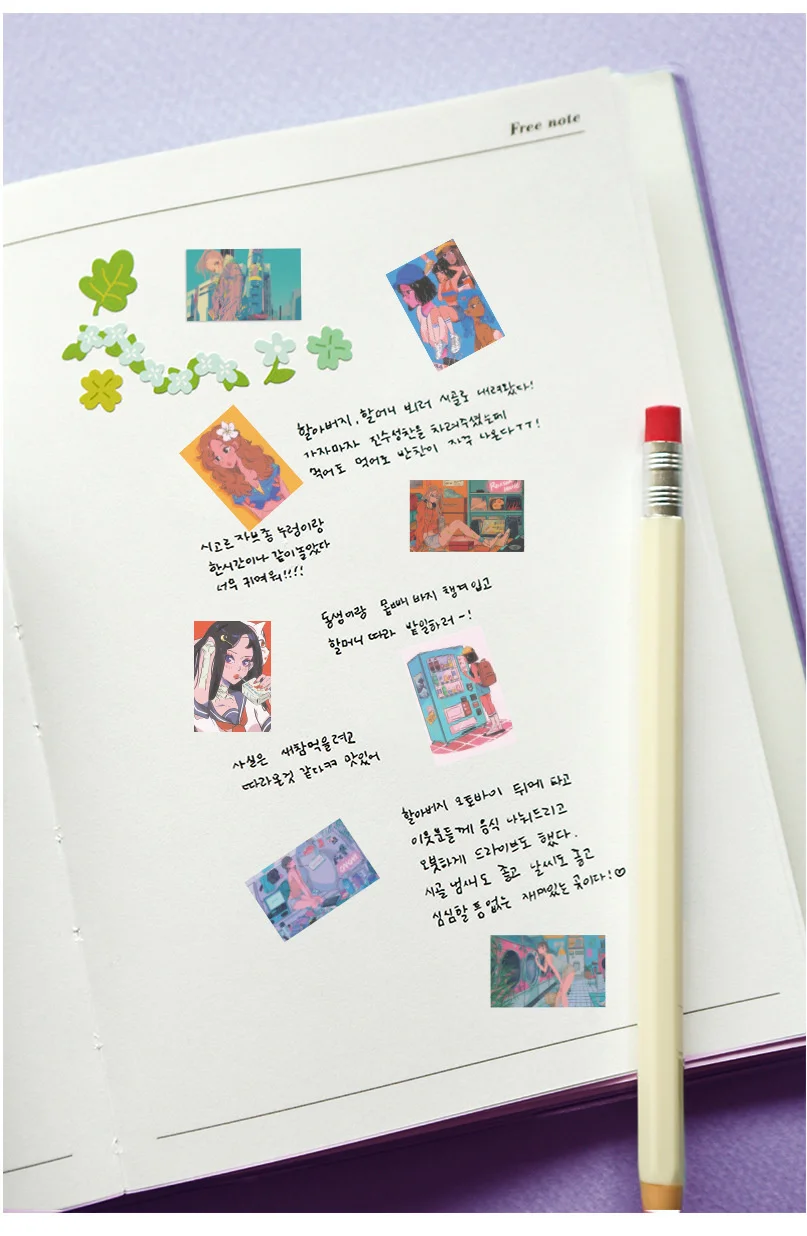 Free note
할아버지, 할머니 뵈러 시골로 내려왔다!
가자마자 진수성찬을 차려주셨는데
먹어도 먹어도 반찬이 자꾸 나온다ㅜㅜ!
시고르자브종 누렁이랑
한시간이나 같이 놀았다
너무 귀여워!!!!
동생이랑 몸빼 바지 챙겨입고
할머니 따라 밭일하러-!
사실은 새참먹을려고
따라온것 같다ㅋㅋ 맛있어
할아버지 오토바이 뒤에 타고
이웃분들께 음식 나눠드리고
오붓하게 드라이브도 했다.
시골 냄새도 좋고 날씨도 좋고
심심할 틈 없는 재미있는 곳이다!♡